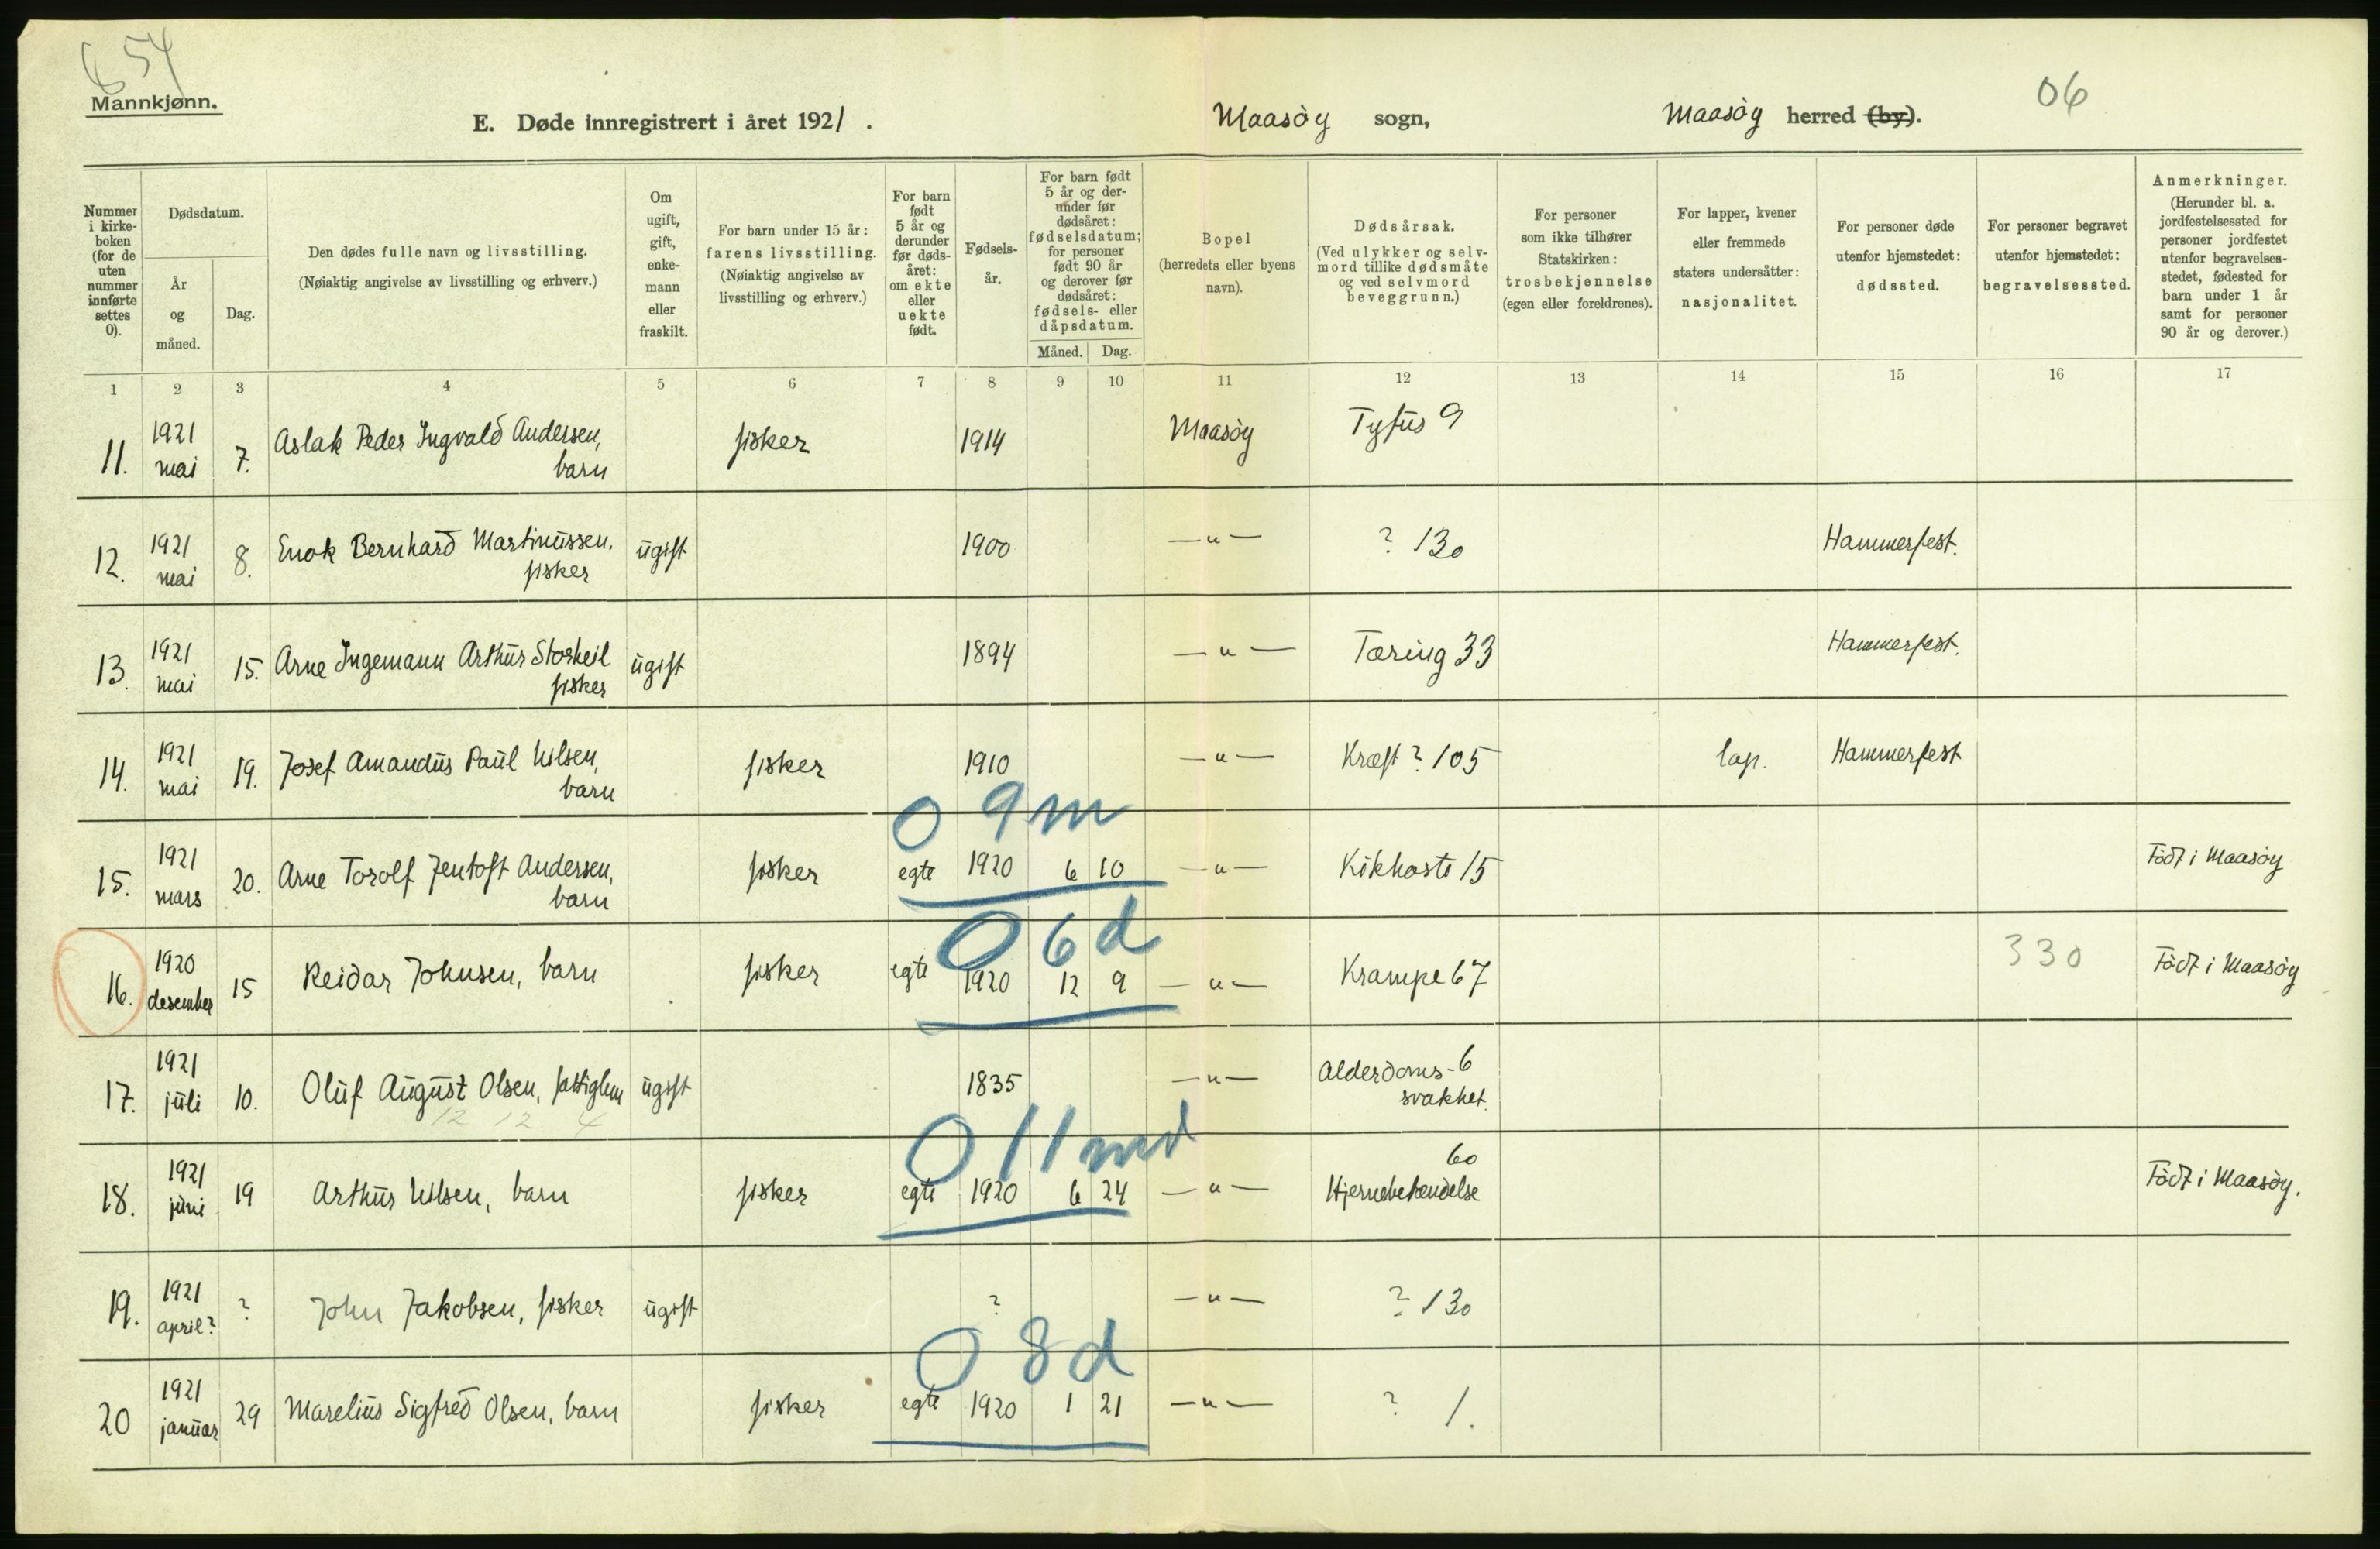 54
Mannkjønn.
E. Døde innregistrert i året 1921.
Maasöy sogn,
Maasöy herred (by).
06
Nummer i kirkeboken (for de uten nummer innførte settes 0).
Dødsdatum.
År og måned.
Dag.
Den dødes fulle navn og livsstilling.
(Nøiaktig angivelse av livsstilling og erhverv.)
Om ugift, gift, enkemann eller fraskilt.
For barn under 15 år: farens livsstilling.
(Nøiaktig angivelse av livsstilling og erhverv.)
For barn født 5 år og derunder før dødsåret: om ekte eller uekte født.
Fødselsår.
For barn født 5 år og derunder før dødsåret: fødselsdatum; for personer født 90 år og derover før dødsåret: fødsels- eller dåpsdatum.
Måned. Dag.
Bopel (herredets eller byens navn).
Dødsårsak.
(Ved ulykker og selvmord tillike dødsmåte og ved selvmord beveggrunn.)
For personer som ikke tilhører Statskirken: trosbekjennelse (egen eller foreldrenes).
For lapper, kvener eller fremmede staters undersåtter: nasjonalitet.
For personer døde utenfor hjemstedet: dødssted.
For personer begravet utenfor hjemstedet: begravelsessted.
Anmerkninger.
(Herunder bl. a. jordfestelsessted for personer jordfestet utenfor begravelsesstedet, fødested for barn under 1 år samt for personer 90 år og derover.)
1 2 3 4 5 6 7 8 9 10 11 12 13 14 15 16 17
11. 1921 mai 7. Aslak Peder Ingvald Andersen, barn fisker 1914 Maasöy Tyfus 9
12. 1921 mai 8. Enok Bernhard Martinussen, fisker ugift 1900 —"— ? 130 Hammerfest.
13. 1921 mai 15. Arne Ingemann Arthur Storkeil fisker ugift 1894 —"— Tæring 33 Hammerfest.
14. 1921 mai 19. Josef Amandus Paul Nilsen, barn fisker 1910 —"— Kræft? 105 lap. Hammerfest
0 9m
15. 1921 mars 20. Arne Torolf Jentoft Andersen, barn fisker egte 1920 6 10 —"— Kikhoste 15 Födt i Maasöy
0 6d
16. 1920 desember 15 Reidar Johnsen, barn fisker egte 1920 12 9 —"— Krampe 67 330 Födt i Maasöy
17. 1921 juli 10. Oluf August Olsen, fattiglem ugift 1835 —"— Alderdoms- 6 svakhet.
12 12 4
0 11 md
18. 1921 juni 19 Arthur Nilsen, barn fisker egte 1920 6 24 —"— 60 Hjernebetændelse Födt i Maasöy.
19. 1921 april? ? John Jakobsen, fisker ugift ? —"— ? 130
0 8d
20 1921 januar 29 Marelius Sigfred Olsen, barn fisker egte 1920 1 21 —"— ? 1.